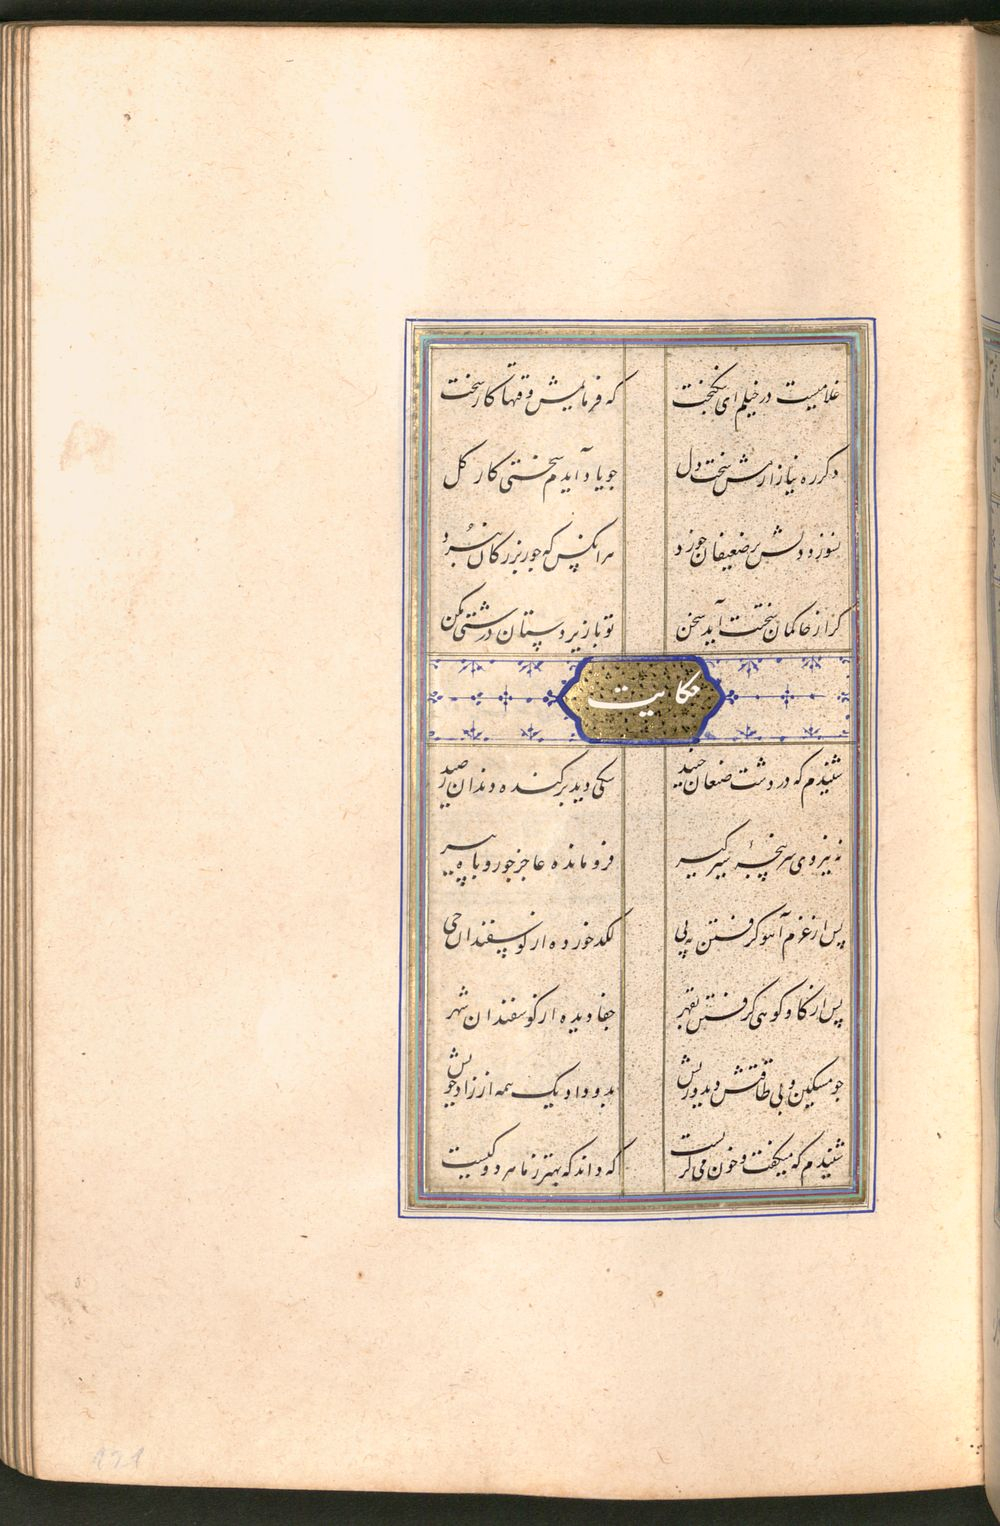 غلامیست در خیلم ای نیکبخت که فرمایمش وقتها کار سخت
دگر ره نیازارمش سخت دل چو یاد آیدم سختی کار گل
هر آنکس که جور بزرگان نبرد نسوزد دلش بر ضعیفان خورد
گر از حاکمان سختت آید سخن تو با زیردستان درشتی مکن
حکایت
شنیدم که در دشت صنعان جنید سگی دید برکنده دندان صید
ز نیروی سر پنجهٔ شیر گیر فرومانده عاجز چو روباه پیر
پس از غرم آهو گرفتن به پی لگد خورده از گوسفندان حی
پس از گاو کوهی گرفتن بقهر جفا دیده از گوسفندان شهر
چو مسکین و بی طاقتش دید و ریش بدو داد یک نیمه از زاد خویش
شنیدم که میگفت و خون می گریست که داند که بهتر ز ما هر دو کیست